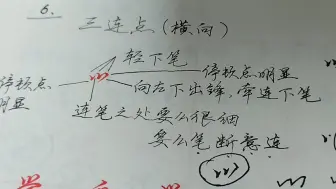 6.
三连点（横向）
轻下笔
停顿点
明显
停顿点明显
向右下出锋，牵连下笔
连笔之处要么很细
要么笔断意连